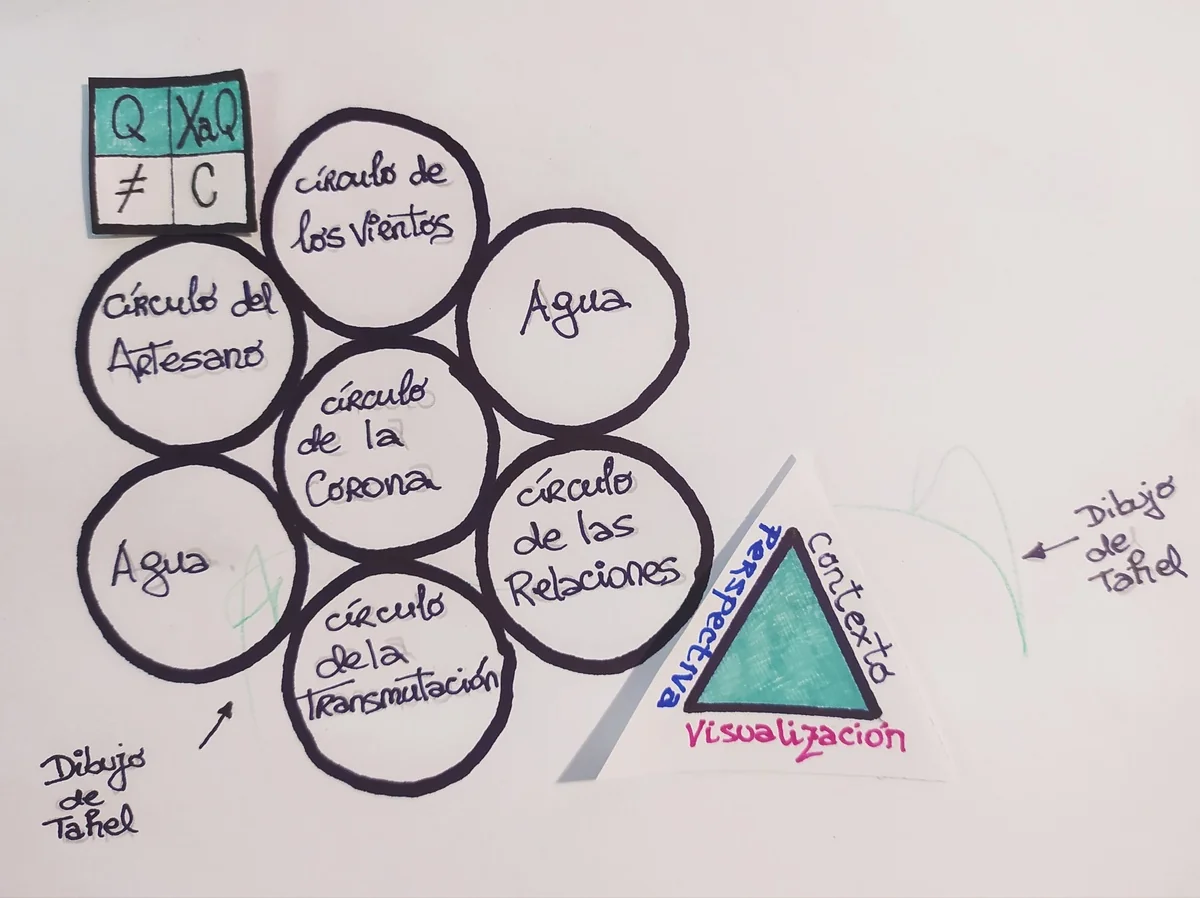 Q XaQ
≠ C
círculo de
los Vientos
Agua
círculo del
Artesano
círculo
de la
Corona
Agua
círculo
de las
Relaciones
círculo
de la
Transmutación
Perspectiva
Contexto
Visualización
Dibujo
de
Tahel
Dibujo
de
Tahel